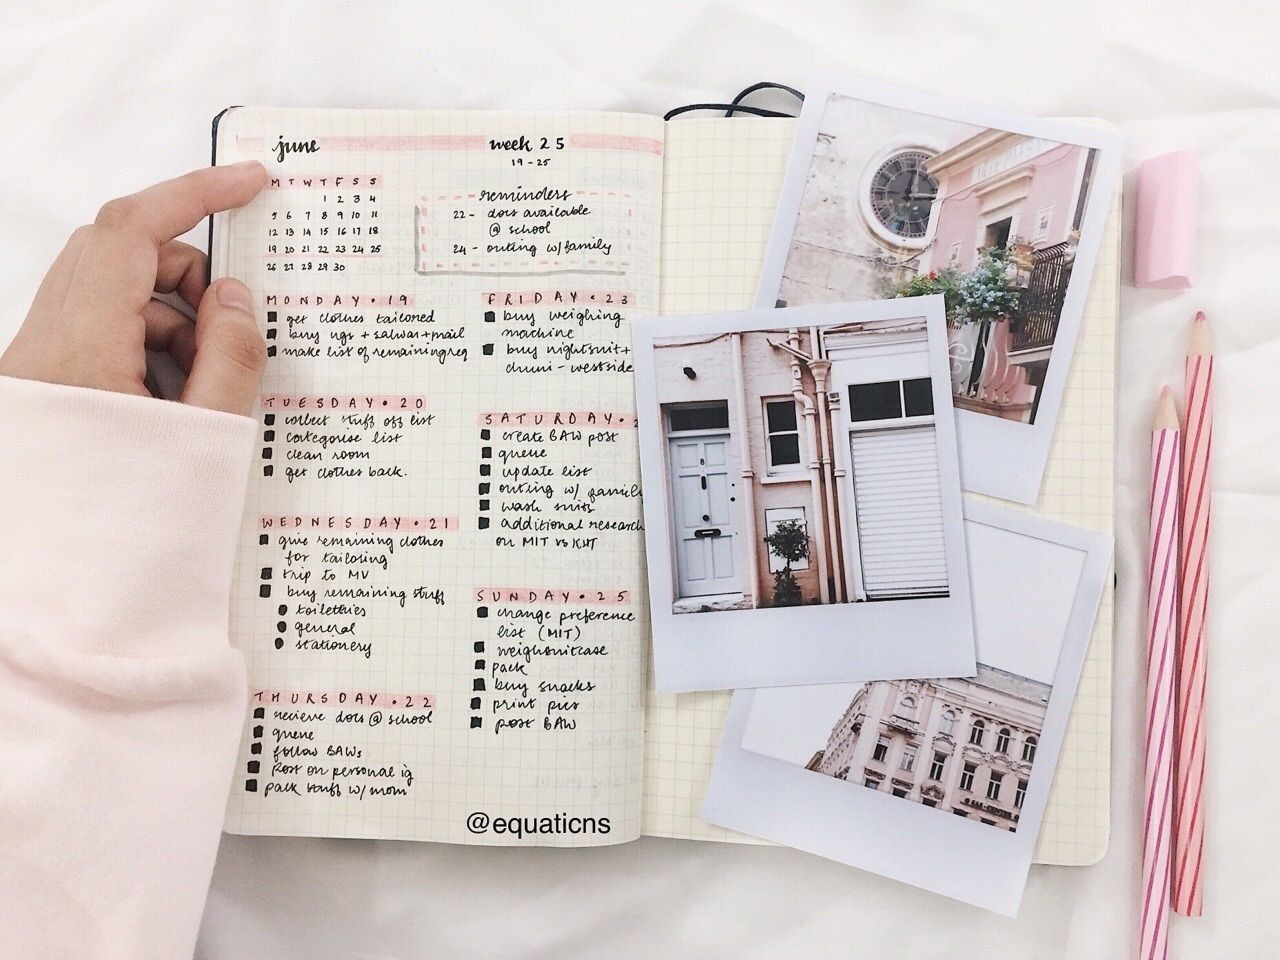 june
M T W T F S S
1 2 3 4
5 6 7 8 9 10 11
12 13 14 15 16 17 18
19 20 21 22 23 24 25
26 27 28 29 30
week 25
19 - 25
reminders
22 - docs available
@ school
24 - outing w/ family
MONDAY • 19
get clothes tailored
buy ugs + salwar + mail
make list of remaining req
TUESDAY • 20
collect stuff off list
categorise list
clean room
get clothes back.
WEDNESDAY • 21
give remaining clothes
for tailoring
trip to MV
buy remaining stuff
toiletries
general
stationery
THURSDAY • 22
recieve docs @ school
queue
follow BAWs
post on personal ig
pack stuff w/ mom
FRIDAY • 23
buy weighing
machine
buy nightsuit +
chuni - westside
SATURDAY • 2
create BAW post
queue
update list
outing w/ family
wash suits
additional research
on MIT vs
SUNDAY • 25
change preference
list (MIT)
weigh suitcase
pack
buy snacks
print pics
post BAW
@equaticns
8